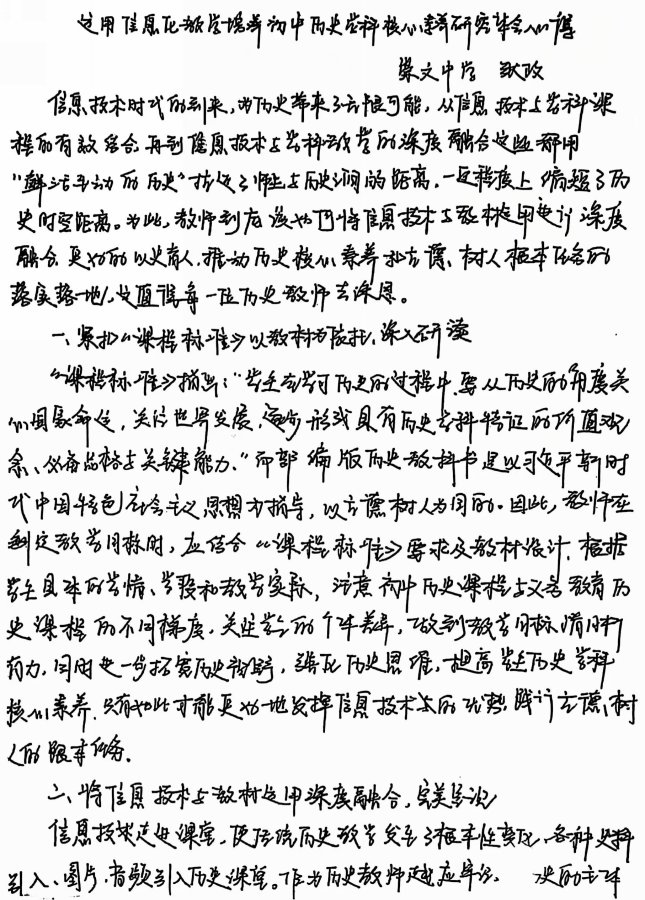 运用信息化教学培养初中历史学科核心素养研究体会心得
崇文中学
信息技术时代的到来,为历史带来了无限可能,从信息技术与学科课
程的有效结合,再到信息技术与学科教学的深度融合这些都用
“鲜活生动的历史”拉近了师生与历史间的距离,一定程度上缩短了历
史时空距离。为此,教师到应该如何将信息技术与教材运用进行深度
融合,更好的以史育人,推动历史核心素养和立德、树人根本任务的
落实落地,这值得每一位历史教师去深思。
一、紧扣《课程标准》以教材为依托,深入研读
《课程标准》指出:“学生在学习历史的过程中,要从历史的角度关
心国家命运,关注世界发展,逐步形成具有历史学科特征的价值观
念、必备品格与关键能力。”而部编版历史教科书是以习近平新时
代中国特色社会主义思想为指导,以立德树人为目的。因此,教师在
制定教学目标时,应结合《课程标准》要求及教材设计,根据
学生具体的学情、学段和教学实际,注意初中历史课程与义务教育历
史课程的不同梯度,关注学生的个体差异,做到教学目标清晰
有力,同时进一步拓宽历史视野,强化历史思维,提高学生历史学科
核心素养.只有如此才能更好地发挥信息技术上的优势,践行立德、树
人的跟本任务.
二、将信息技术与教材运用深度融合,完美呈现
信息技术走进课堂,使传统历史教学发生了根本性变化,各种史料
引入、图片,音频引入历史课堂。作为历史教师更应牢记 史的主体